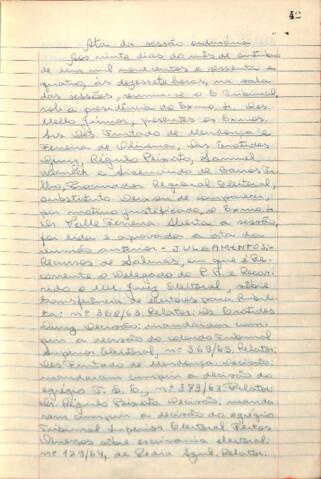 42
Ata da sessão ordinária
Aos vinte dias do mês de outubro
de um mil novecentos e sessenta e
quatro, às dezessete horas, na sala
das sessões, reuniu-se o E. Tribunal,
sob a presidência do Exmo. Sr. Des.
Mello Júnior, presentes os Exmos.
Srs. Des. Furtado de Mendonça e
Ferreira de Oliveira, Drs.
Régulo Peixoto, Samuel
Werneck e de Barros Fi-
lho, Procurador Regional Eleitoral,
substituto. Deixou de comparecer,
por motivo justificado, o Exmo. Sr.
Dr. Valle Ferreira. Aberta a sessão,
foi lida e aprovada a ata da
reunião anterior - JULGAMENTOS:
Recursos de Salinas, em que é Re-
corrente o Delegado do P.R. e Recor-
rido o MM. Juiz Eleitoral, sôbre
transferência de eleitores para Rubeli-
ta: nº 368/63. Relator: Dr.
Decisão: mandaram cum-
prir a decisão do colendo Tribunal
Superior Eleitoral, nº 369/63. Relator:
Des. Furtado de Mendonça. Decisão:
mandaram cumprir a decisão do
egrégio T.S.E., nº 373/63. Relator:
Dr. Régulo Peixoto. Decisão: manda-
ram cumprir a decisão do egrégio
Tribunal Superior Eleitoral. Feitos
diversos sôbre escrivania eleitoral:
nº 129/64, de Pedra Azul. Relator: